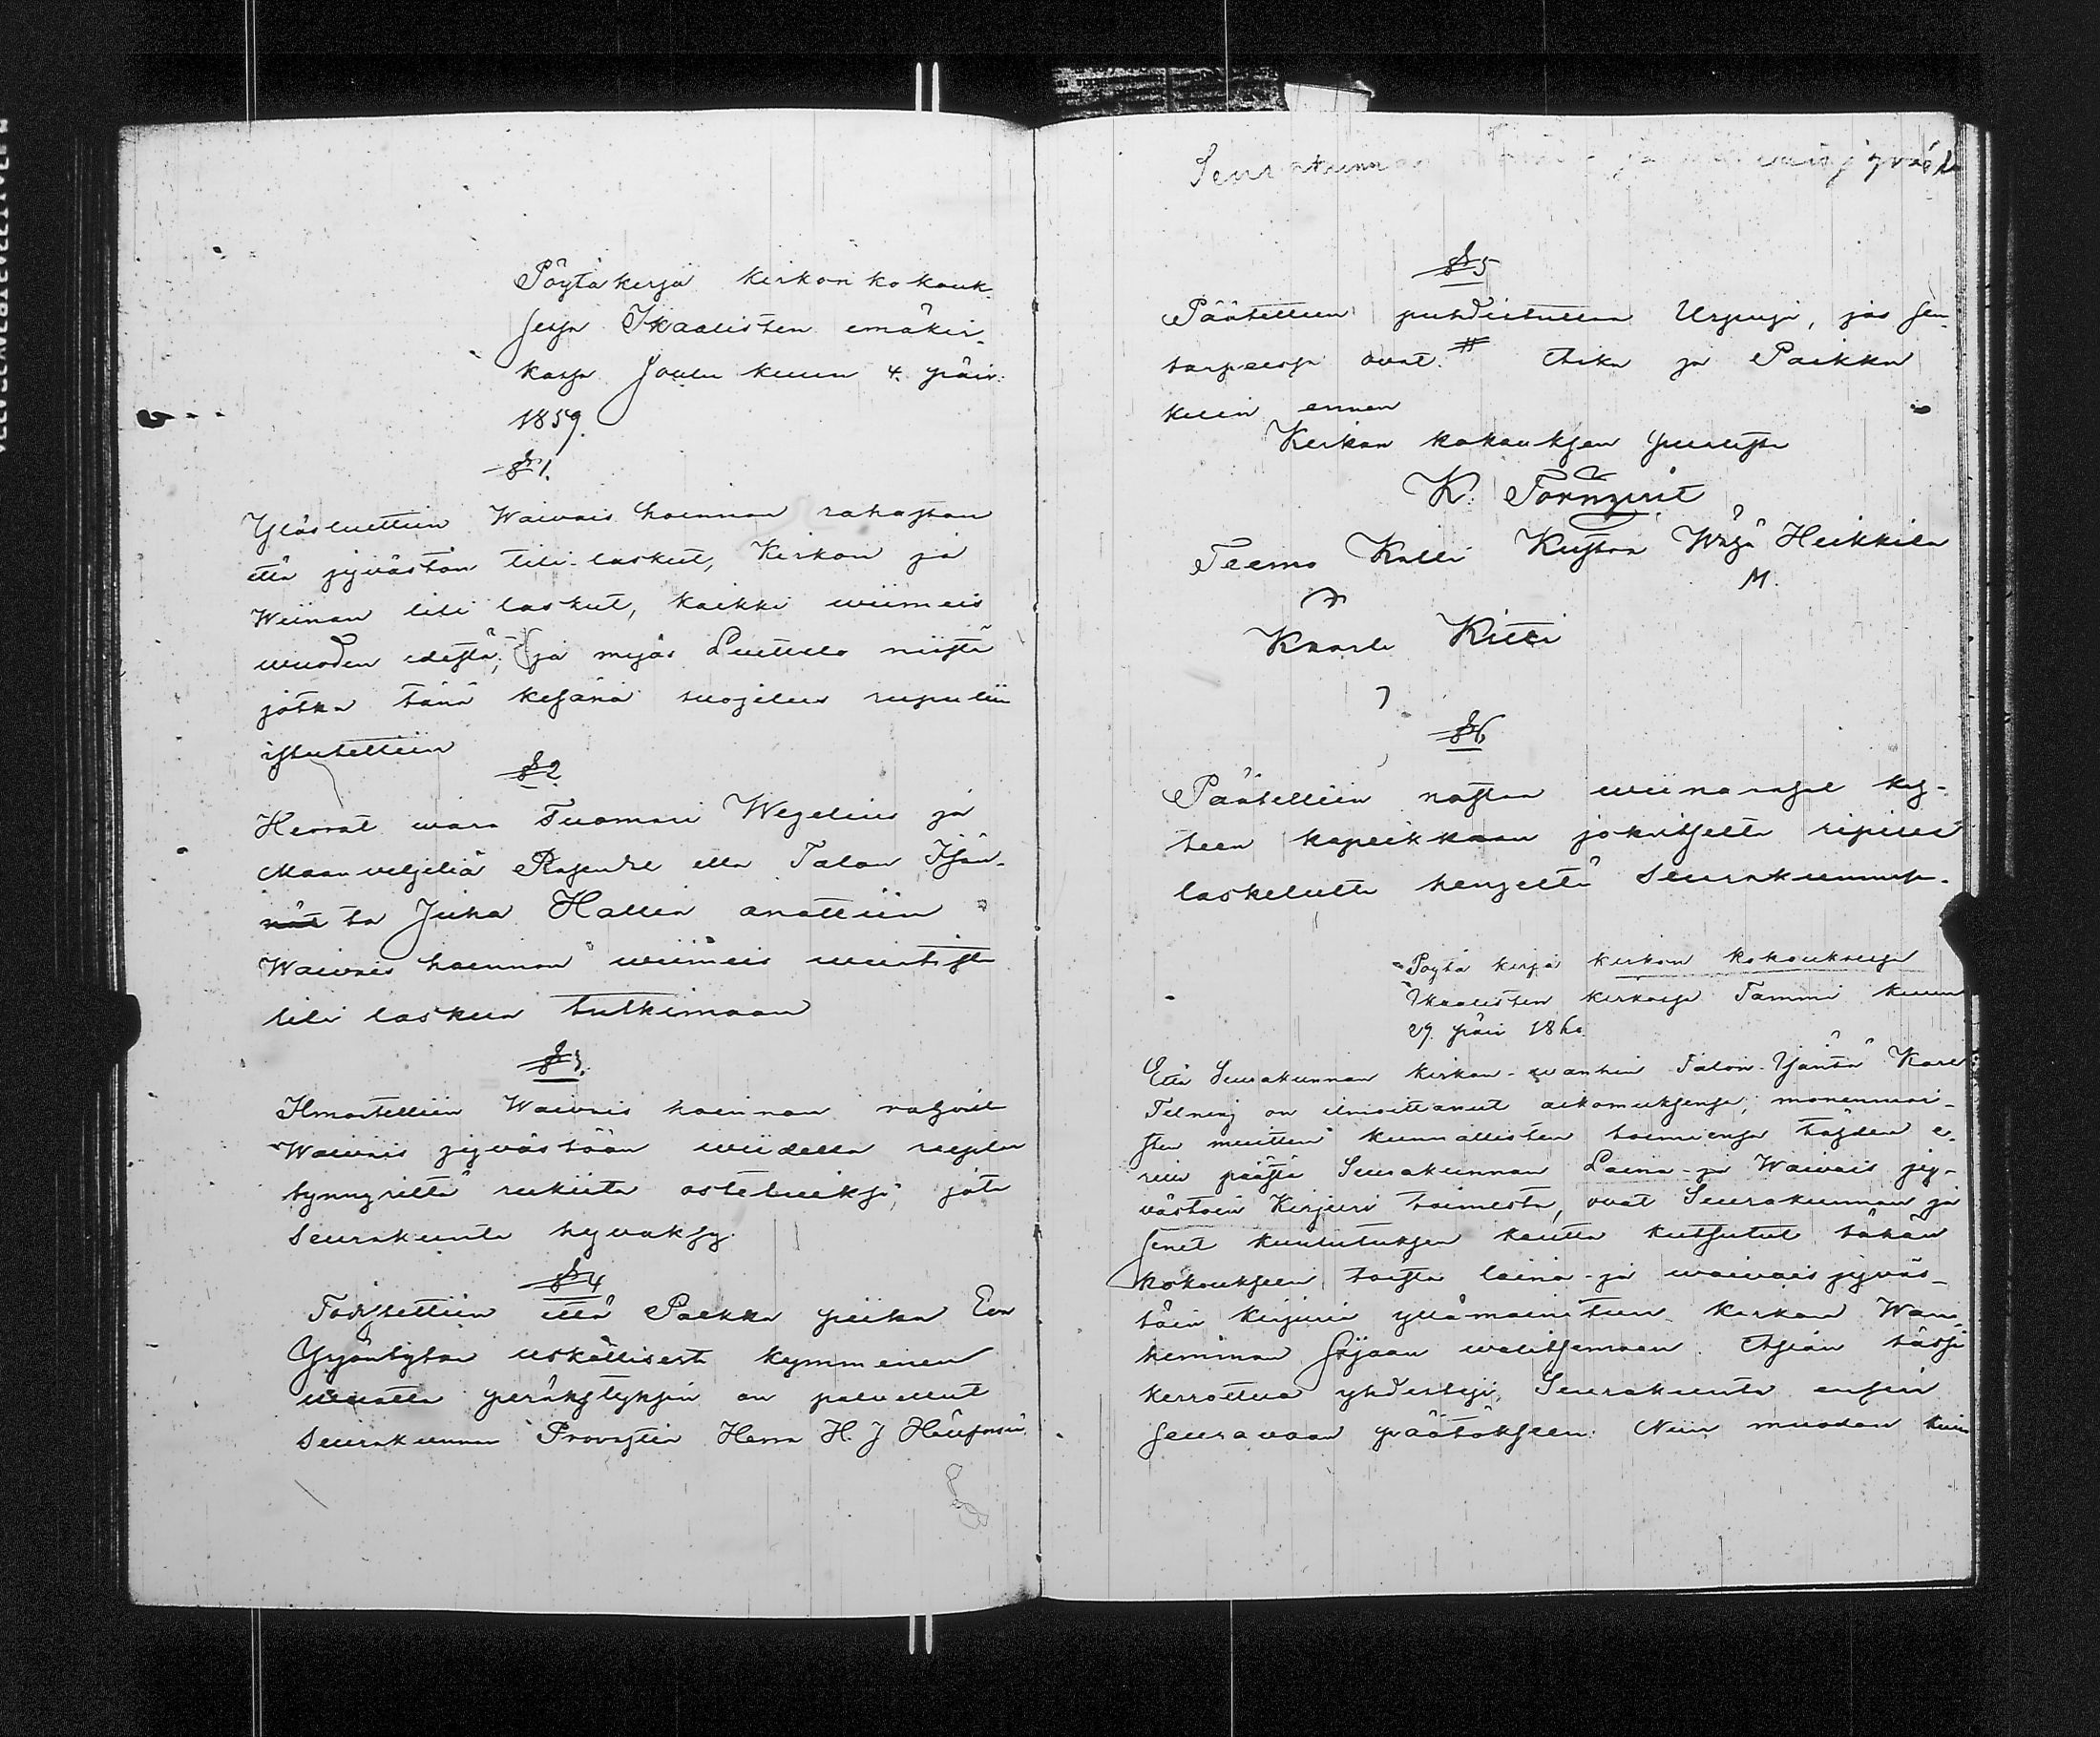 Pöytäkirja kirkon kokouk-
sessa Ikaalisten emäkir-
kossa Joulu kuun 4. päiv.
1859.
§ 1.
Ylösluettiin Waivais hoinnon rahaston
että jyvästön tili-laskut, Kirkon ja
Wiinan tili laskut, kaikki wiimeis
wuoden edestä, ja myös Luettelo niistä
jotka tänä kesänä suojelus rupuliin
istutettiin
§ 2
Herrat wara Tuomari Wegelius ja
Maanveljeliä ella Talon Isän-
tä Juha Hallia anottiin
Waivais hoinnon wiimeis wuotista
tili laskua tutkimaan
§ 3.
Ilmoitettiin Waivais hoinnon
Waivais jyvästöön wiidellä
tynnyrillä rukiita ostetuiksi, jota
Seurakunta hyvaksy.
§ 4
Todistettiin että piika Eva
uskollisesti kymmenen
wuotta peräkstyksin on palvellut
Seurakunnan Provastia Herra H. J
Seurakunnan ja jyväst
§ 5
Päätettiin puhdistuttaa Urpuja, jos sen
tarpeessa ovat. # Aika ja Paikka
kuin ennen
Kirkon kokouksen puolesta
K. Törnqvist
Teemo Kalli Kustaa Heikkilä
M.
Kaarle Kitti
§ 6
Päätettiin nostaa wiina rahat kah-
teen kopeikkaan jokaitselta ripille
laskelulta hengeltä Seurakunnassa.
Pöytä kirja kirkon kokouksessa
Ikaalisten kirkossa Tammi kuun
29. päiv 1860.
Että Seurakunnan kirkon-wanhin Talon-Isäntä Karl
on ilmoittanut aikomuksensa, monenmai-
sten muitten kunnallisten toimiensa tähden e-
rin päästä Seurakunnan Laina- ja Waivais jy-
västöin Kirjuri toimesta, ovat Seurakunnan jä
senet kuulutuksen kautta kutsutut tähän
kokoukseen toista laina- ja waivais jyväs-
töin kirjuria yllämainitun kirkon Wan-
himman sijaan walitsemaan. Asian tässä
kerrottua yhdistyi Seurakunta
seuravaan päätökseen: Niin muodon kuin